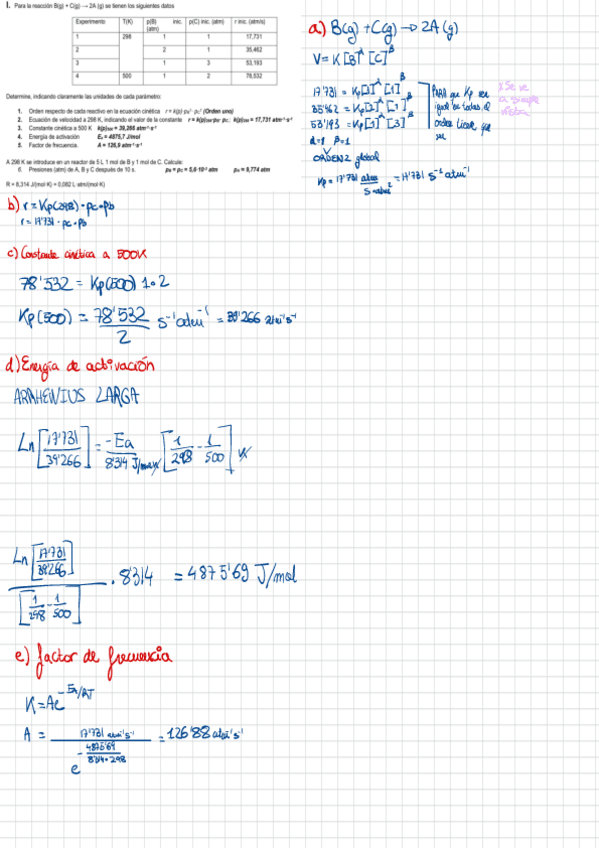 I. Para la reacción B(g) + C(g) → 2A (g) se tienen los siguientes datos
Experimento T(K) p(B) inic. (atm) p(C) inic. (atm) r inic. (atm/s)
1 298 1 1 17,731
2 2 1 35,462
3 1 3 53,193
4 500 1 2 78,532
Determine, indicando claramente las unidades de cada parámetro:
1. Orden respecto de cada reactivo en la ecuación cinética r = k(p)·pBˣ·pCʸ (Orden uno)
2. Ecuación de velocidad a 298 K, indicando el valor de la constante r = k(p)298·pB·pC; k(p)298 = 17,731 atm⁻¹·s⁻¹
3. Constante cinética a 500 K k(p)500 = 39,266 atm⁻¹·s⁻¹
4. Energía de activación Ea = 4875,7 J/mol
5. Factor de frecuencia. A = 126,9 atm⁻¹·s⁻¹
A 298 K se introduce en un reactor de 5 L 1 mol de B y 1 mol de C. Calcula:
6. Presiones (atm) de A, B y C después de 10 s. pB = pC = 5,6·10⁻³ atm pA = 9,774 atm
R = 8,314 J/(mol K) = 0,082 L·atm/(mol K)
a) B(g) + C(g) → 2A (g)
V = K [B]^α [C]^β
17'731 = Kp[1]^α [1]^β
35'462 = Kp[2]^α [1]^β
53'193 = Kp[1]^α [3]^β
PARA que Kp sea
igual en todas el
orden tiene que
ser
* Se ve
a simple
vista
α=1 β=1
ORDEN 2 global
Kp = 17'731 atm/s·atm² = 17'731 s⁻¹ atm⁻¹
b) r = Kp(298)·pc·pb
r = 17'731·pc·pb
c) Constante cinética a 500K
78'532 = Kp(500) 1·2
Kp(500) = 78'532/2 s⁻¹atm⁻¹ = 39'266 atm⁻¹s⁻¹
d) Energía de activación
ARRHENIUS LARGA
Ln [17'731/39'266] = -Ea/8'314 J/molK [1/298 - 1/500] K
Ln [17'731/39'266] / [1/298 - 1/500] · 8'314 = 4875'69 J/mol
e) factor de frecuencia
K = Ae^-Ea/RT
A = 17'731 atm⁻¹s⁻¹ / e^-4875'69/8'314·298 = 126'88 atm⁻¹s⁻¹